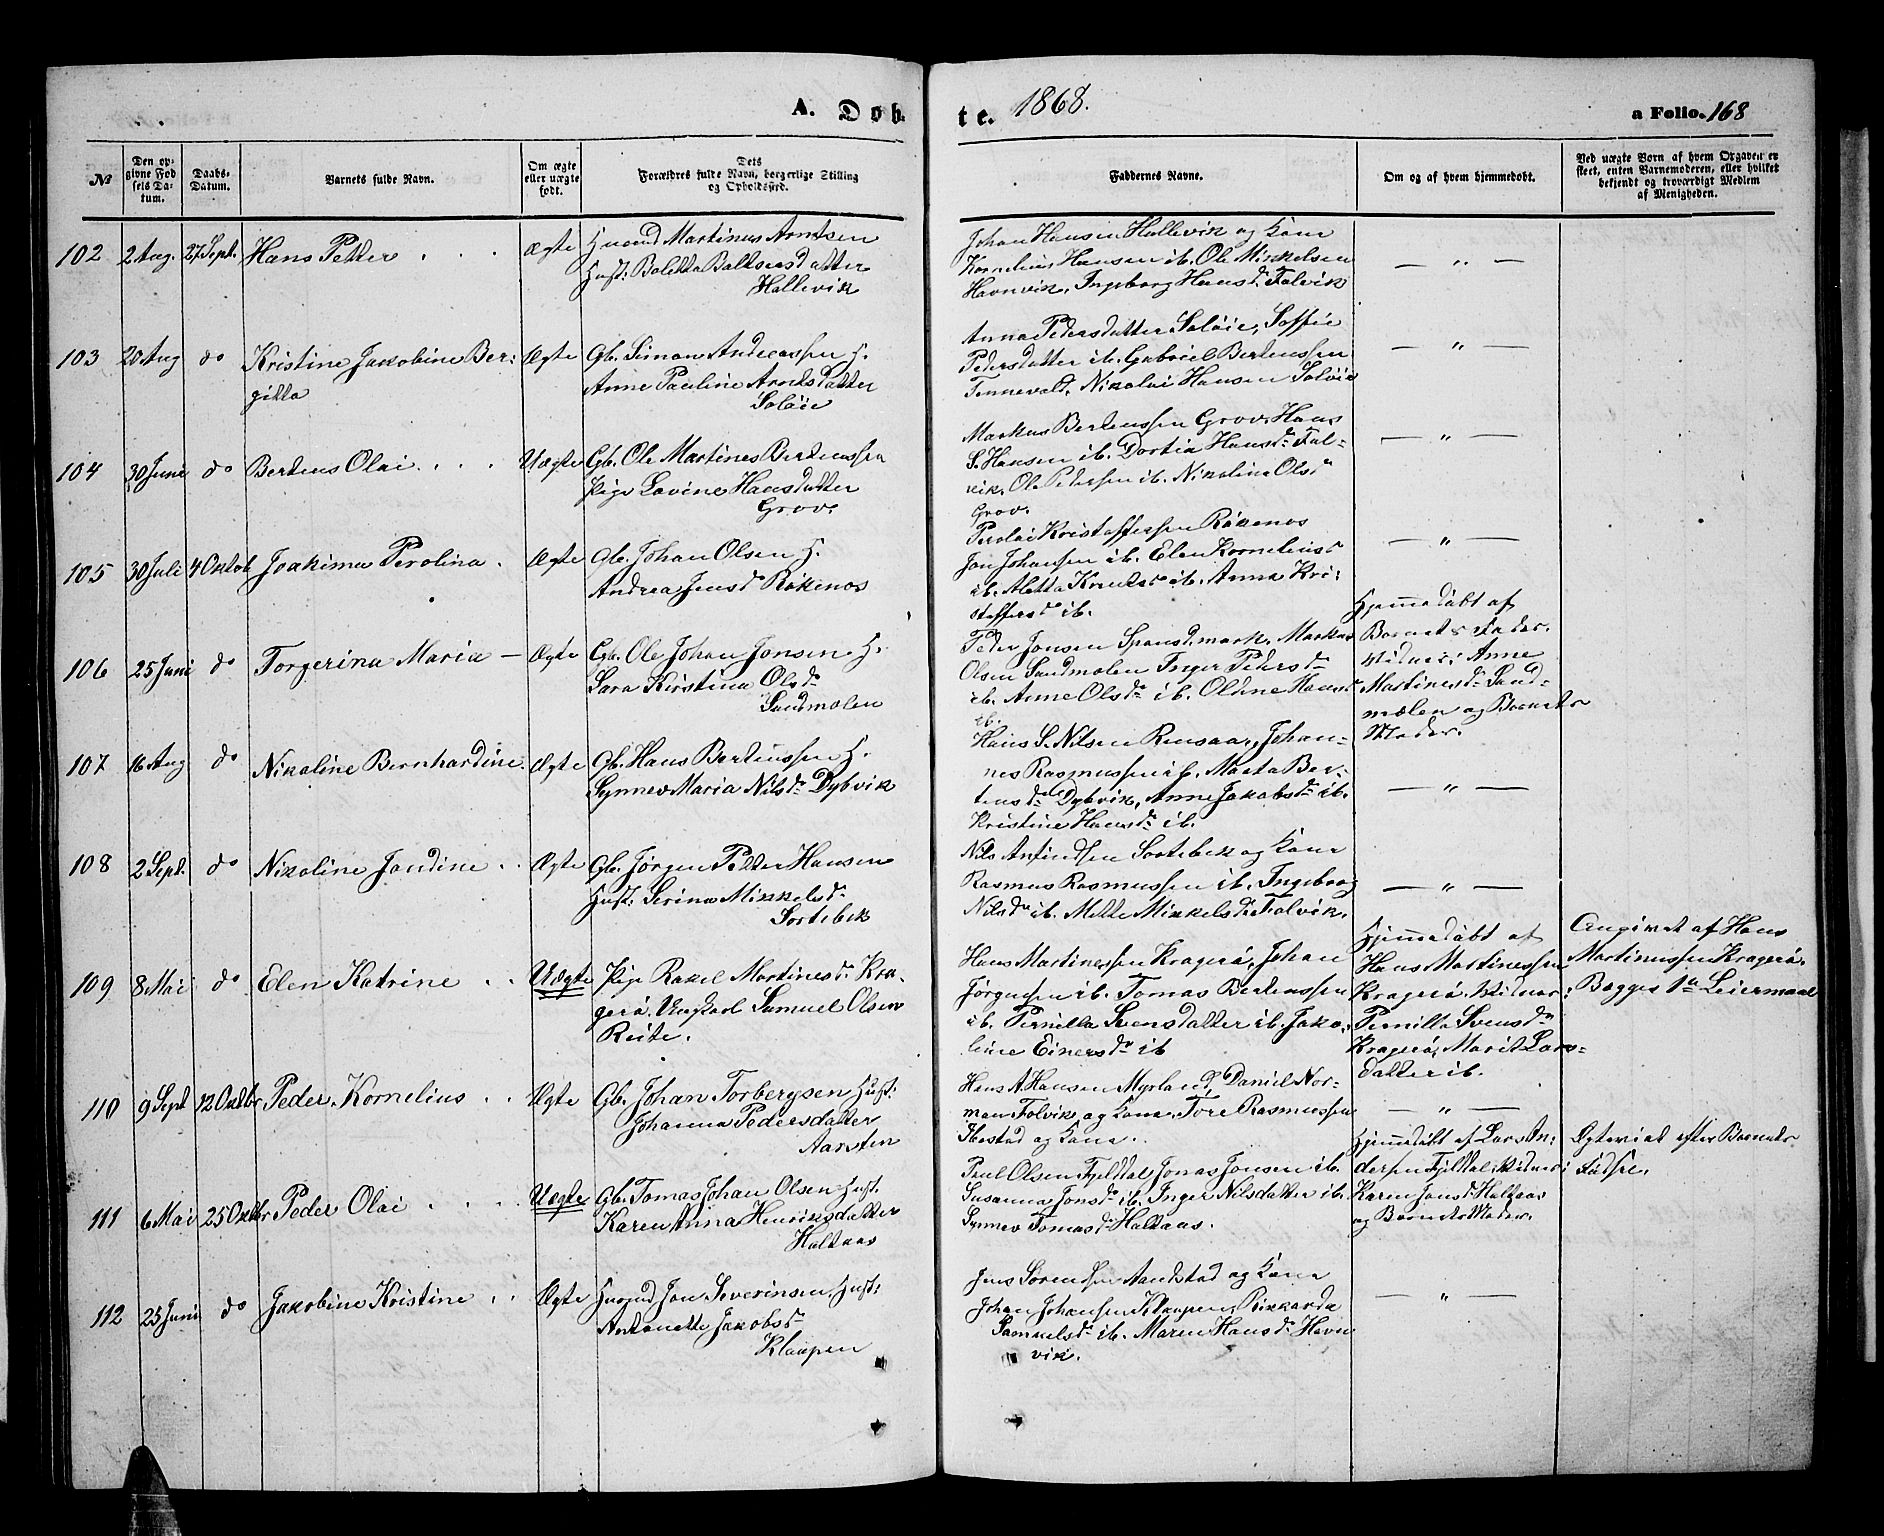 A. Døb-
te. 1868.
a Folio. 168
№
Den op-
givne Fød
sels Da-
tum.
Daabs-
Datum.
Barnets fulde Navn.
Om ægte
eller uægte
født.
Dets
Forældres fulde Navn, borgerlige Stilling
og Opholdssted.
Faddernes Navne.
Om og af hvem hjemmedøbt.
Ved uægte Børn af hvem Opgaven er
skeet, enten Barnemoderen, eller hvilket
bekjendt og troværdigt Medlem
af Menigheden.
102 2 Aug. 27 Sept. Hans Petter . . . Ægte
Husmd Martinus Arntsen
Hust: Boletta Baltsersdatter
Hallevik
Johan Hansen Hallevik og Kone
Kornelius Hansen ib. Ole Mikkelsen
Havnvik, Ingeborg Hansdr Folvik
— " —
103 20 Aug do Kristine Jakobine Ber-
gitta
Ægte
Gb. Simon Andreassen H.
Anne Pauline Arntsdatter
Soløie
Anna Pedersdatter Soløie, Soffie
Pedersdatter ib. Gabriel Bertenssen
Tennevold, Nikolai Hansen Soløie
— " —
104 30 Juni do Berteus Olai . . . Uægte
Gb. Ole Martines Bertenssen
Pige Lovine Hansdatter
Grov.
Markus Bertenssen Grov, Hans
S. Hansen ib. Dortia Hansdr Fol-
vik, Ole Pedersen ib. Nikolina Olsdr
Grov.
— " —
105 30 Juli 4 Oktob Joakima Perolina . Ægte
Gb. Johan Olsen H.
Andrea Jensdr Røkenes
Perolai Kristoffersen Røkenes
Jon Johansen ib. Elen Korneliusdr
ib. Aletta Knudsdr ib. Anna Kri-
stoffersdr ib.
— " —
106 25 Juni do Torgerina Maria — Ægte
Gb. Ole Johan Jonsen H.
Sara Kirstina Olsdr
Sandmolen
Peder Jonsen Spansdmark, Markus
Olsen Sandmolen Inger Pedersdr
ib. Anne Olsdr ib. Oldine Hansdr
ib.
Hjemmedøbt af
Barnets Fader.
Vidner: Anne
Martinesdr Sand-
mælen og Barnets
Moder.
107 16 Aug do Nikoline Bernhardine. Ægte
Gb. Hans Bertenssen H.
Synnev Maria Nilsdr Dybvik
Hans S. Nilsen Rensaa, Johan-
nes Rasmussen ib. Marta Ber-
tensdr Dybvik, Anne Jakobsdr ib.
Kristine Hansdr ib.
— " —
108 2 Sept. do Nikoline Jandine . . Ægte
Gb. Jørgen Petter Hansen
Hust. Serina Mikkelsdr
Sortebek
Nils Anfindsen Sortebek og Kone
Rasmus Rasmussen ib. Ingeborg
Nilsdr ib. Mette Mikkelsdr Folvik.
— " —
109 8 Mai do Elen Katrine . . Uægte
Pige Rakel Martinesdr Kra-
gerø. Ungkarl Samuel Olsen
Reite.
Hans Martinessen Kragerø, Johan
Jørgensen ib. Tomas Bertenssen
ib. Pernilla Svensdatter ib. Jako-
line Einersdr ib
Hjemmedøbt af
Hans Martinessen
Kragerø. Vidner:
Pernilla Svensdr
Kragerø, Marit Lars-
datter ib.
Angivet af Hans
Martinussen Kragerø.
Begges 1ste Leiermaal
110 9 Sept 12 Oktbr Peder Kornelius . . Ægte
Gb. Johan Torbergsen Hust:
Johanna Pedersdatter
Aarsten
Hans A. Hansen Myrland, Daniel Nor-
man Folvik og Kone, Tore Rasmussen
Ibestad og Kone.
— " —
111 6 Mai 25 Oktbr Peder Olai . . . Uægte
Gb. Tomas Johan Olsen Hust.
Karen Anna Henriksdatter
Haltaas
Paul Olsen Fjeldal, Jonas Jonsen ib.
Susanna Jonsdr ib. Inger Nilsdatter ib.
Synnev Tomasdr Haltaas.
Hjemmedøbt af Lars An-
dersen Fjeldal: Vidner:
Karen Jonsdr Haltaas
og Barnets Moder.
Ægteviet efter Barnets
Fødsel.
112 25 Juni do Jakobine Kristine . . Ægte
Husmd Jon Severinsen, Hust:
Antonette Jakobsdr
Klaapen
Jens Sørensen Aandstad og Kone
Johan Johansen Klaapen, Rikkarda
Samuelsdr ib. Maren Hansdr Havn
vik.
— " —